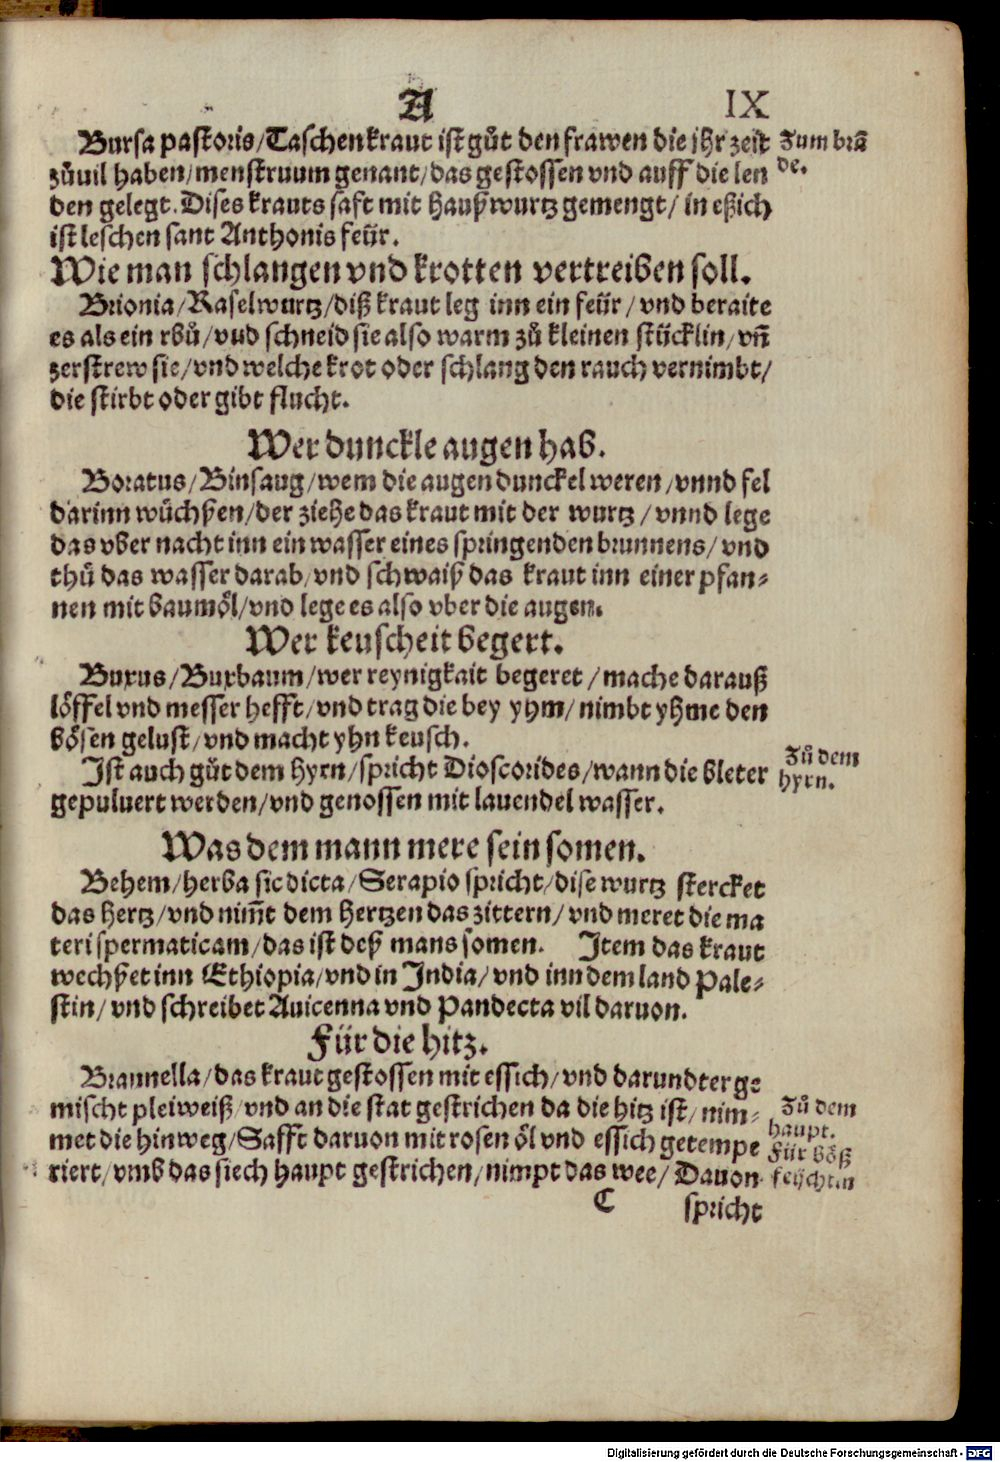 A
IX
Bursa pastoris/Taschenkraut ist gůt den frawen die jhr zeit
Zum brā
zůuil haben/menstruum genant/das gestossen vnd auff die len
de.
den gelegt. Dises krauts saft mit haußwurtz gemengt/ in eßich
ist leschen sant Anthonis feür.
Wie man schlangen vnd krotten vertreiben soll.
Brionia/Raselwurtz/diß kraut leg inn ein feür/ vnd beraite
es als ein rbů/vnd schneid sie also warm zů kleinen stücklin/vñ
zerstrew sie/vnd welche krot oder schlang den rauch vernimbt/
die stirbt oder gibt flucht.
Wer dunckle augen hab.
Boratus/Binsaug/wem die augen dunckel weren/vnnd fel
darinn wüchßen/der ziehe das kraut mit der wurtz/vnnd lege
das vber nacht inn ein wasser eines springenden brunnens/vnd
thů das wasser darab/vnd schwaiß das kraut inn einer pfan-
nen mit baumöl/vnd lege es also vber die augen.
Wer keuscheit begert.
Buxus/Buxbaum/wer reynigkait begeret/mache darauß
löffel vnd messer hefft/vnd trag die bey yhm/ nimbt yhme den
bösen gelust/vnd macht yhn keusch.
Ist auch gůt dem hyrn/spricht Dioscorides/wann die bleter
Zů dem
gepuluert werden/vnd genossen mit lauendel wasser.
hyrn.
Was dem mann mere sein somen.
Behem/herba sic dicta/Serapio spricht/dise wurtz stercket
das hertz/vnd nim̃t dem hertzen das zittern/vnd meret die ma
teri spermaticam/das ist deß mans somen. Item das kraut
wechßet inn Ethiopia/vnd in India/vnd inn dem land Pale-
stin/vnd schreibet Auicenna vnd Pandecta vil daruon.
Für die hitz.
Braunella/das kraut gestossen mit essich/vnd darundter ge
mischt pleiweiß/vnd an die stat gestrichen da die hitz ist/nim-
Zů dem
met die hinweg/Safft daruon mit rosen öl vnd essich getempe
haupt.
Für böß
riert/vmb das siech haupt gestrichen/nimpt das wee/ Dauon
feüchten
C
spricht
Digitalisierung gefördert durch die Deutsche Forschungsgemeinschaft - DFG